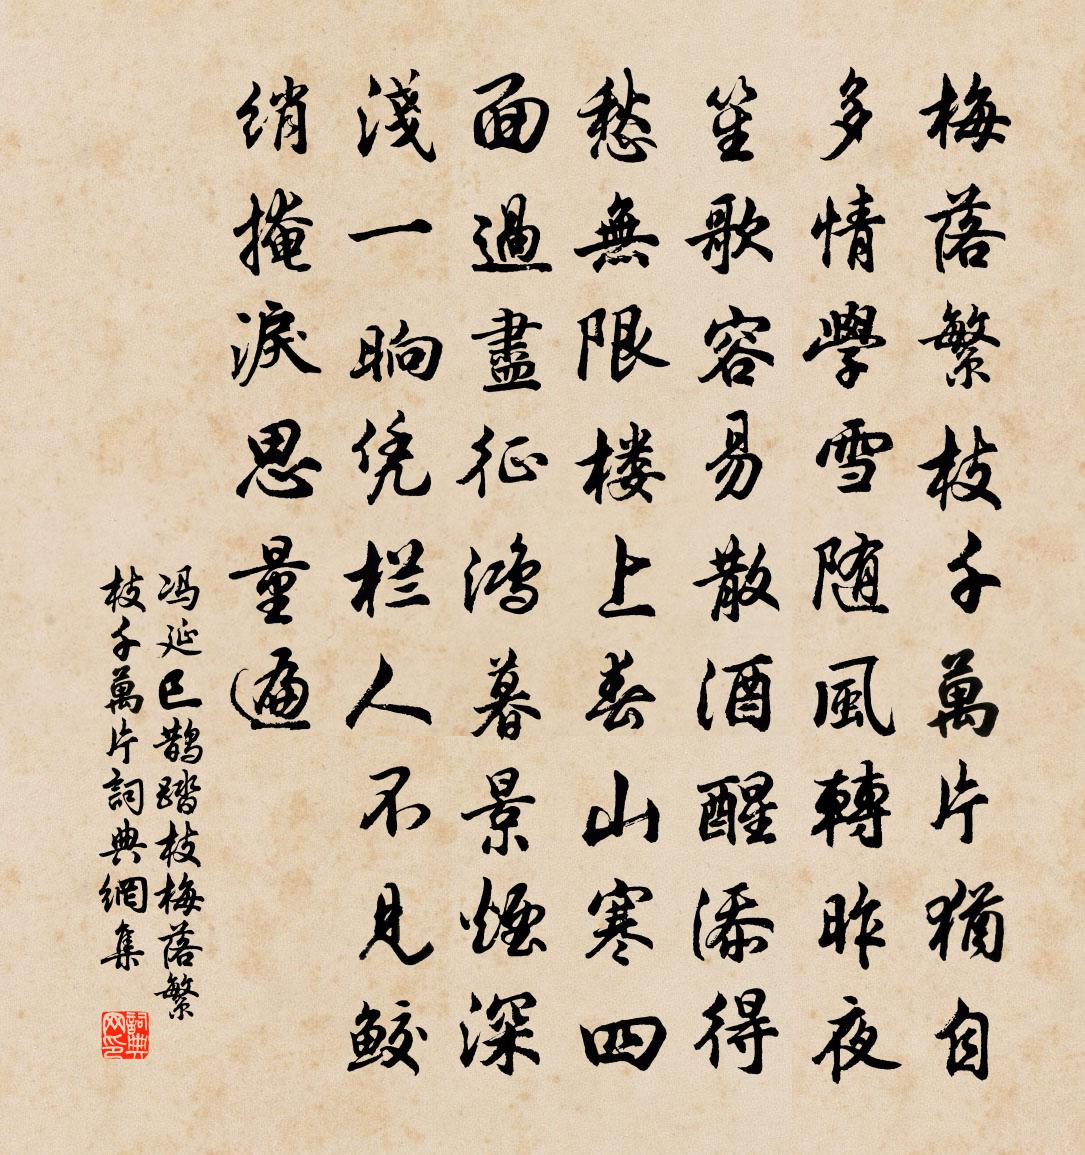 梅落繁枝千萬片猶自
多情學雪随風轉昨夜
笙歌容易散酒醒添得
愁無限楼上春山寒四
面過盡征鸿暮景煙深
淺一晌凭栏人不見鲛
绡掩淚思量遍
冯延巳鹊踏枝梅落繁
枝千萬片詞典網集
詞典网印